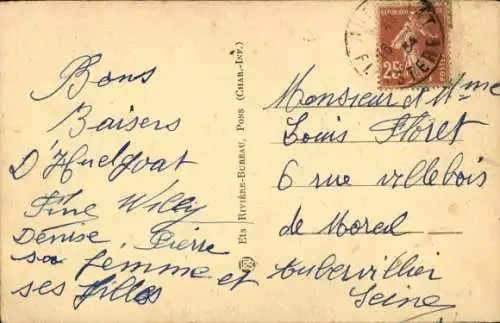 Bons
Baisers
D'Huelgoat
Fine Willy
Denise, Pierre
sa femme et
ses filles
Ets Rivière-Bureau, Pons (Char.-Inf.)
Monsieur et Mme
Louis Floret
6 rue villebois
de Moreul
Aubervillier
Seine
25c